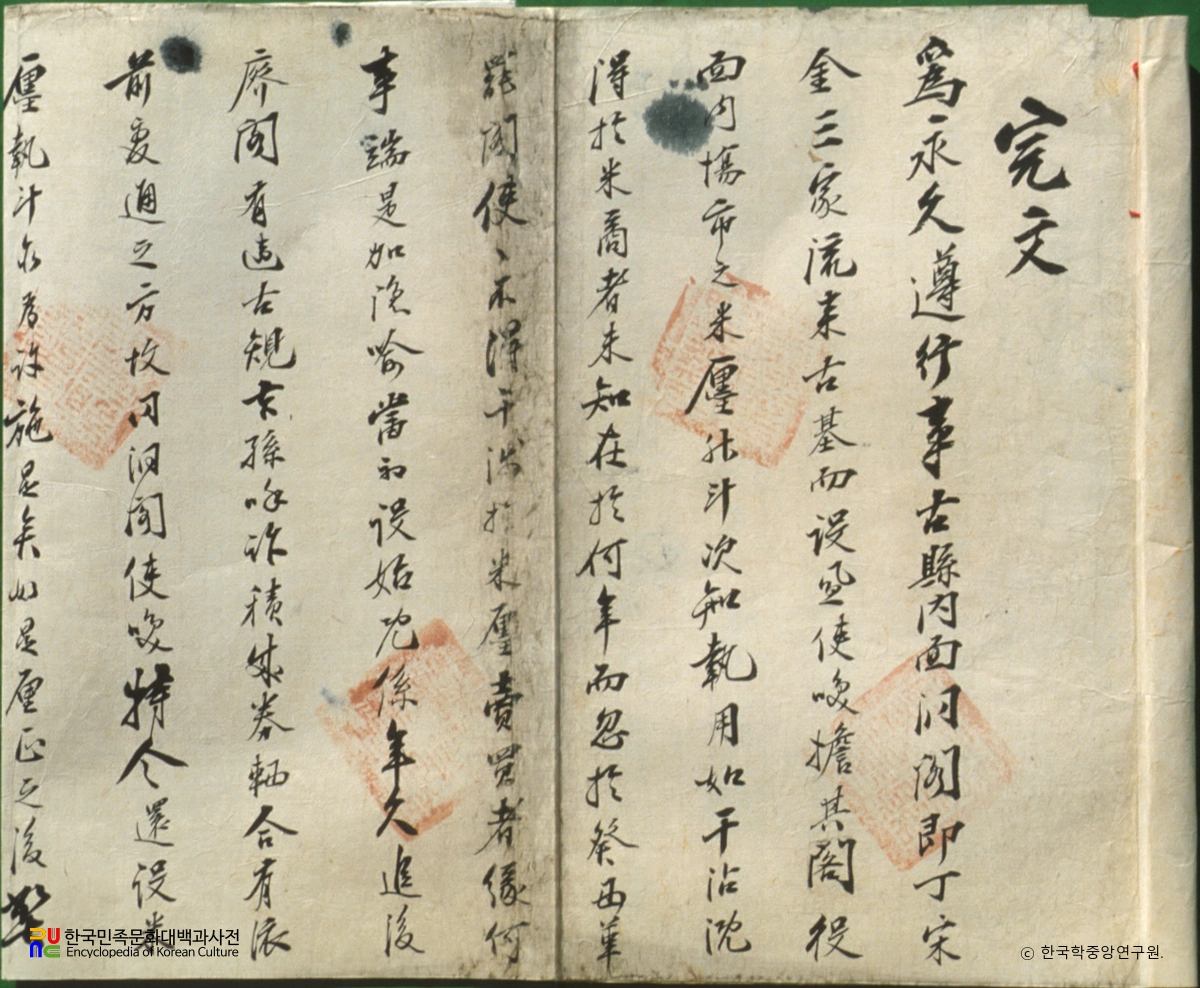 完文
爲永久遵行事古縣內面洞閣即丁宋
金三家流來古基而設邑使喚擔其閣役
面內場市之米廛升斗次知執用如干沾漑
得於米商者未知在於何年而忽於癸酉革
罷閣使〻不得干涉於米廛賣買者緣何
事端是如淹喩當初設始旣係年久追後
廢閣有違古規古孫呼訴積成券軸合有依
前変通之方故同洞閣使喚特令還設米
廛執斗亦爲許施是矣如是厘正之後
한국민족문화대백과사전
Encyclopedia of Korean Culture
ⓒ 한국학중앙연구원.